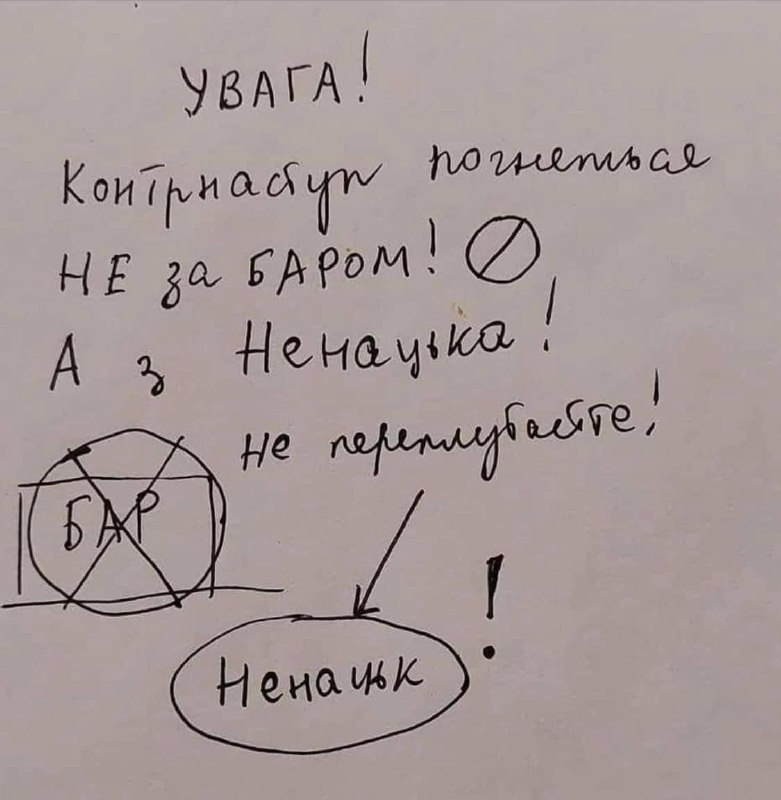 УВАГА!
Контрнаступ почнеться
НЕ за БАРОМ!
А з Ненацька!
не переплутайте!
БАР
Ненацьк
!